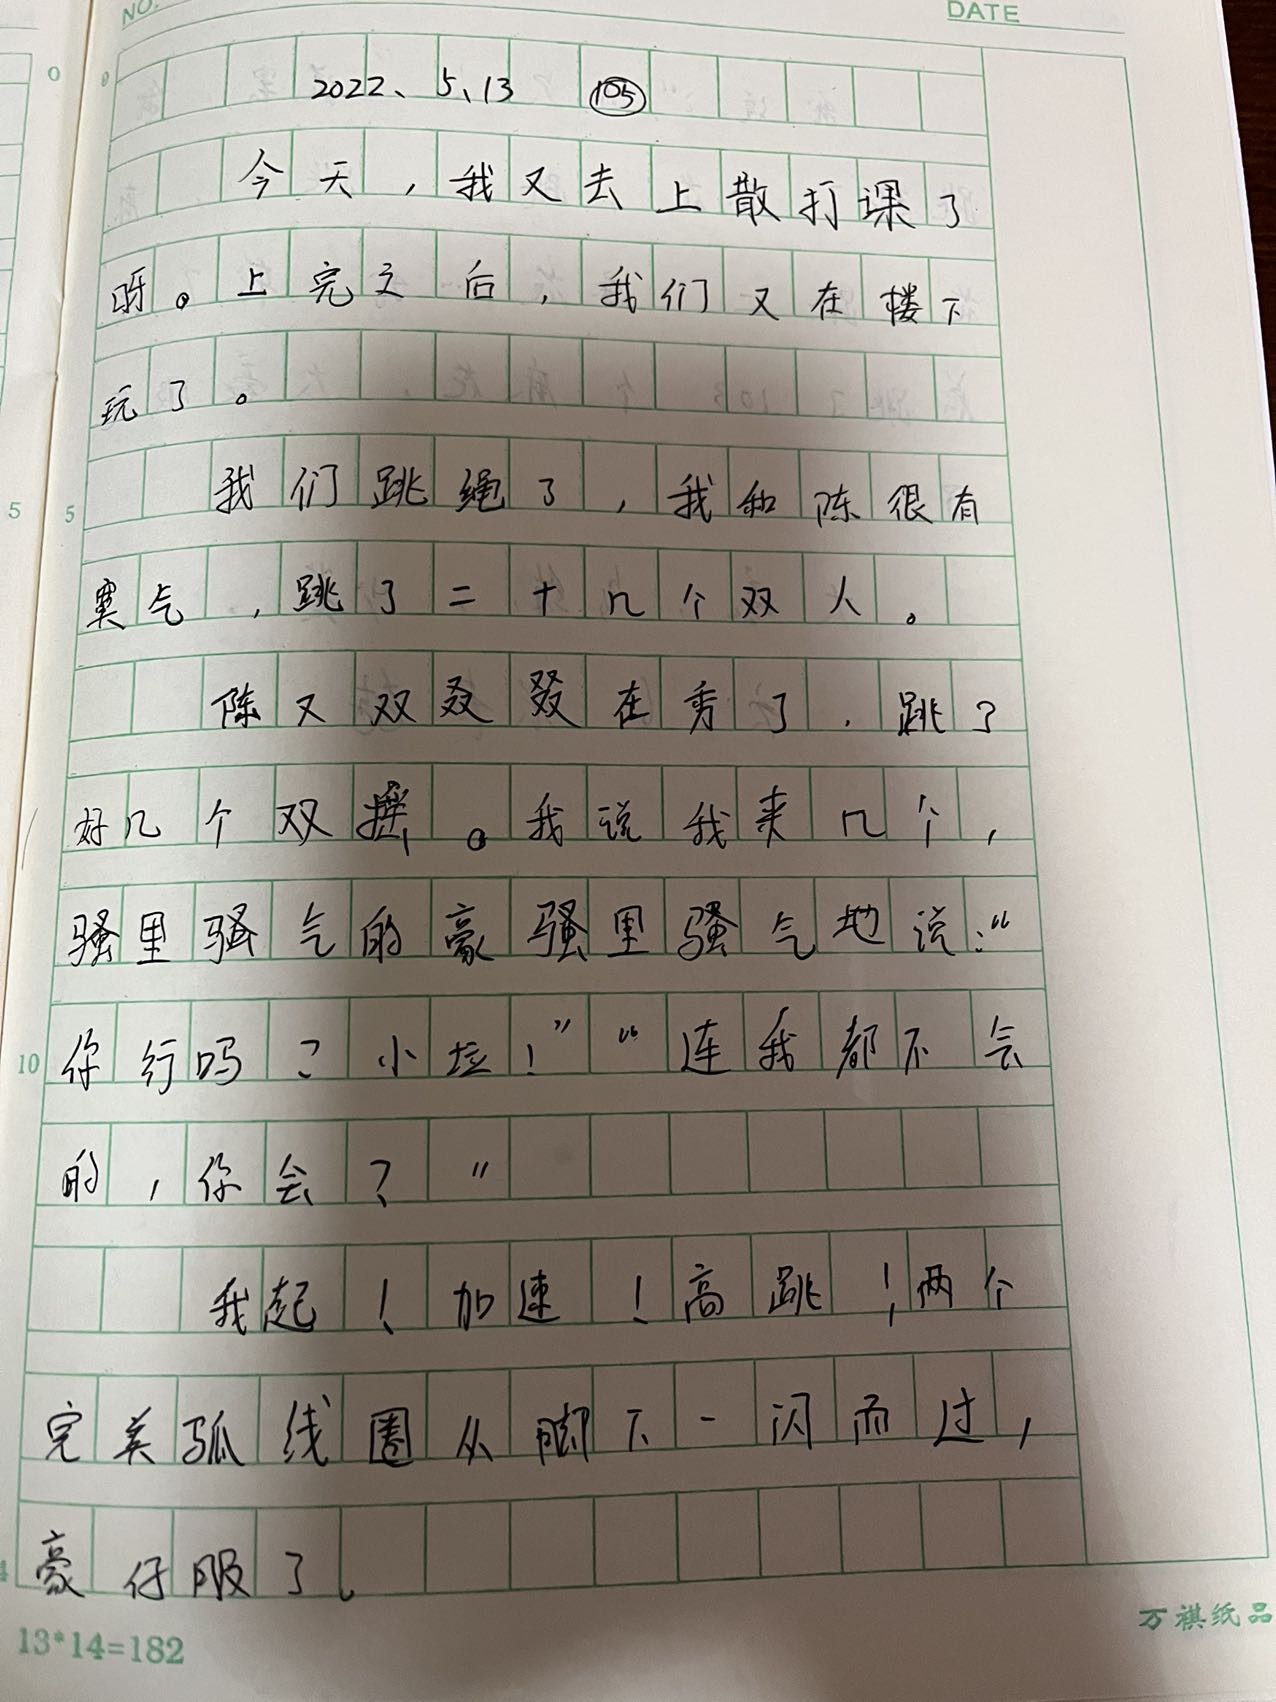 NO.
DATE
2022、5、13 105
今天，我又去上散打课了
呀。上完之后，我们又在楼下
玩了。
5 5 我们跳绳了，我和陈很有
票气，跳了二十几个双人。
陈又双叒叕在秀了，跳了
好几个双摇。我说我来几个，
骚里骚气的豪骚里骚气地说：“
10 你行吗？小垃！”“连我都不会
的，你会？”
我起！加速！高跳！两个
完美弧线圈从脚下一闪而过，
豪仔服了。
13*14=182
万祺纸品